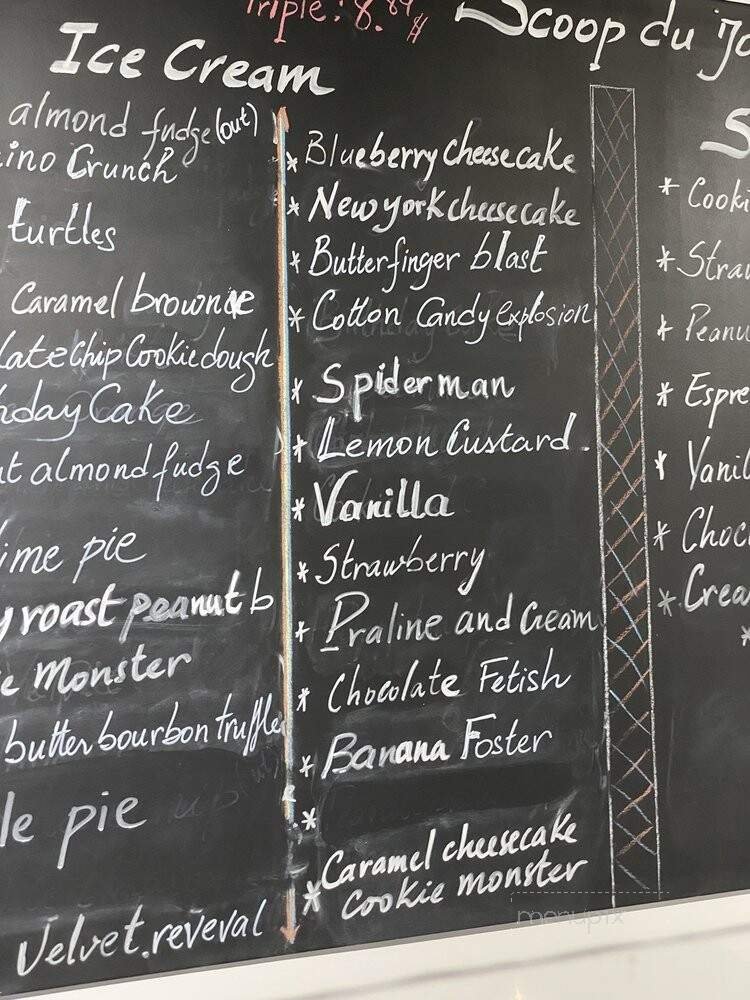 Triple: 8.89$
Scoop du Jo
Ice Cream
almond fudge (out)
ino Crunch
turtles
Caramel brownie
late Chip Cookie dough
hday Cake
ut almond fudge
ime pie
y roast peanut b
e monster
butter bourbon truffle
le pie
Velvet.reveval
* Blueberry cheesecake
* New york cheesecake
* Butterfinger blast
* Cotton Candy Explosion
* Spiderman
* Lemon Custard.
* Vanilla
* Strawberry
* Praline and Cream
* Chocolate Fetish
* Banana Foster
*
* Caramel cheesecake
cookie monster
S
* Cooki
* Straw
* Peanu
* Espre
* Vanil
* Choc
* Crea
*
menupix